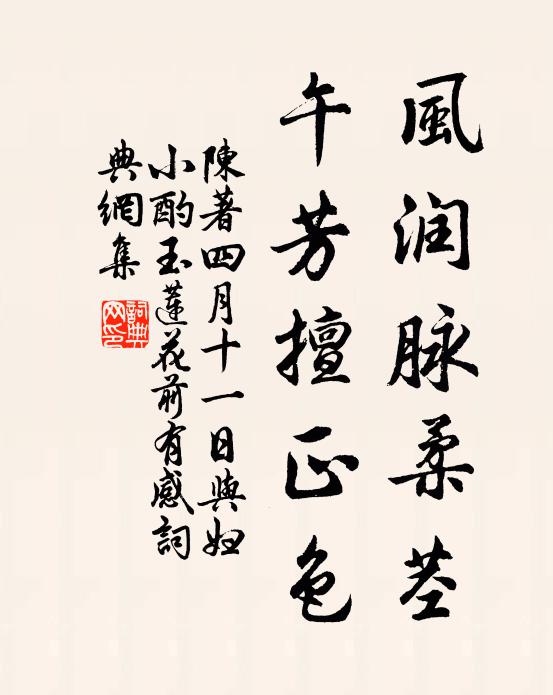 風润脉柔莖
午芳擅正色
陳著四月十一日與妇
小酌玉蓮花前有感詞
典網集
詞典网印